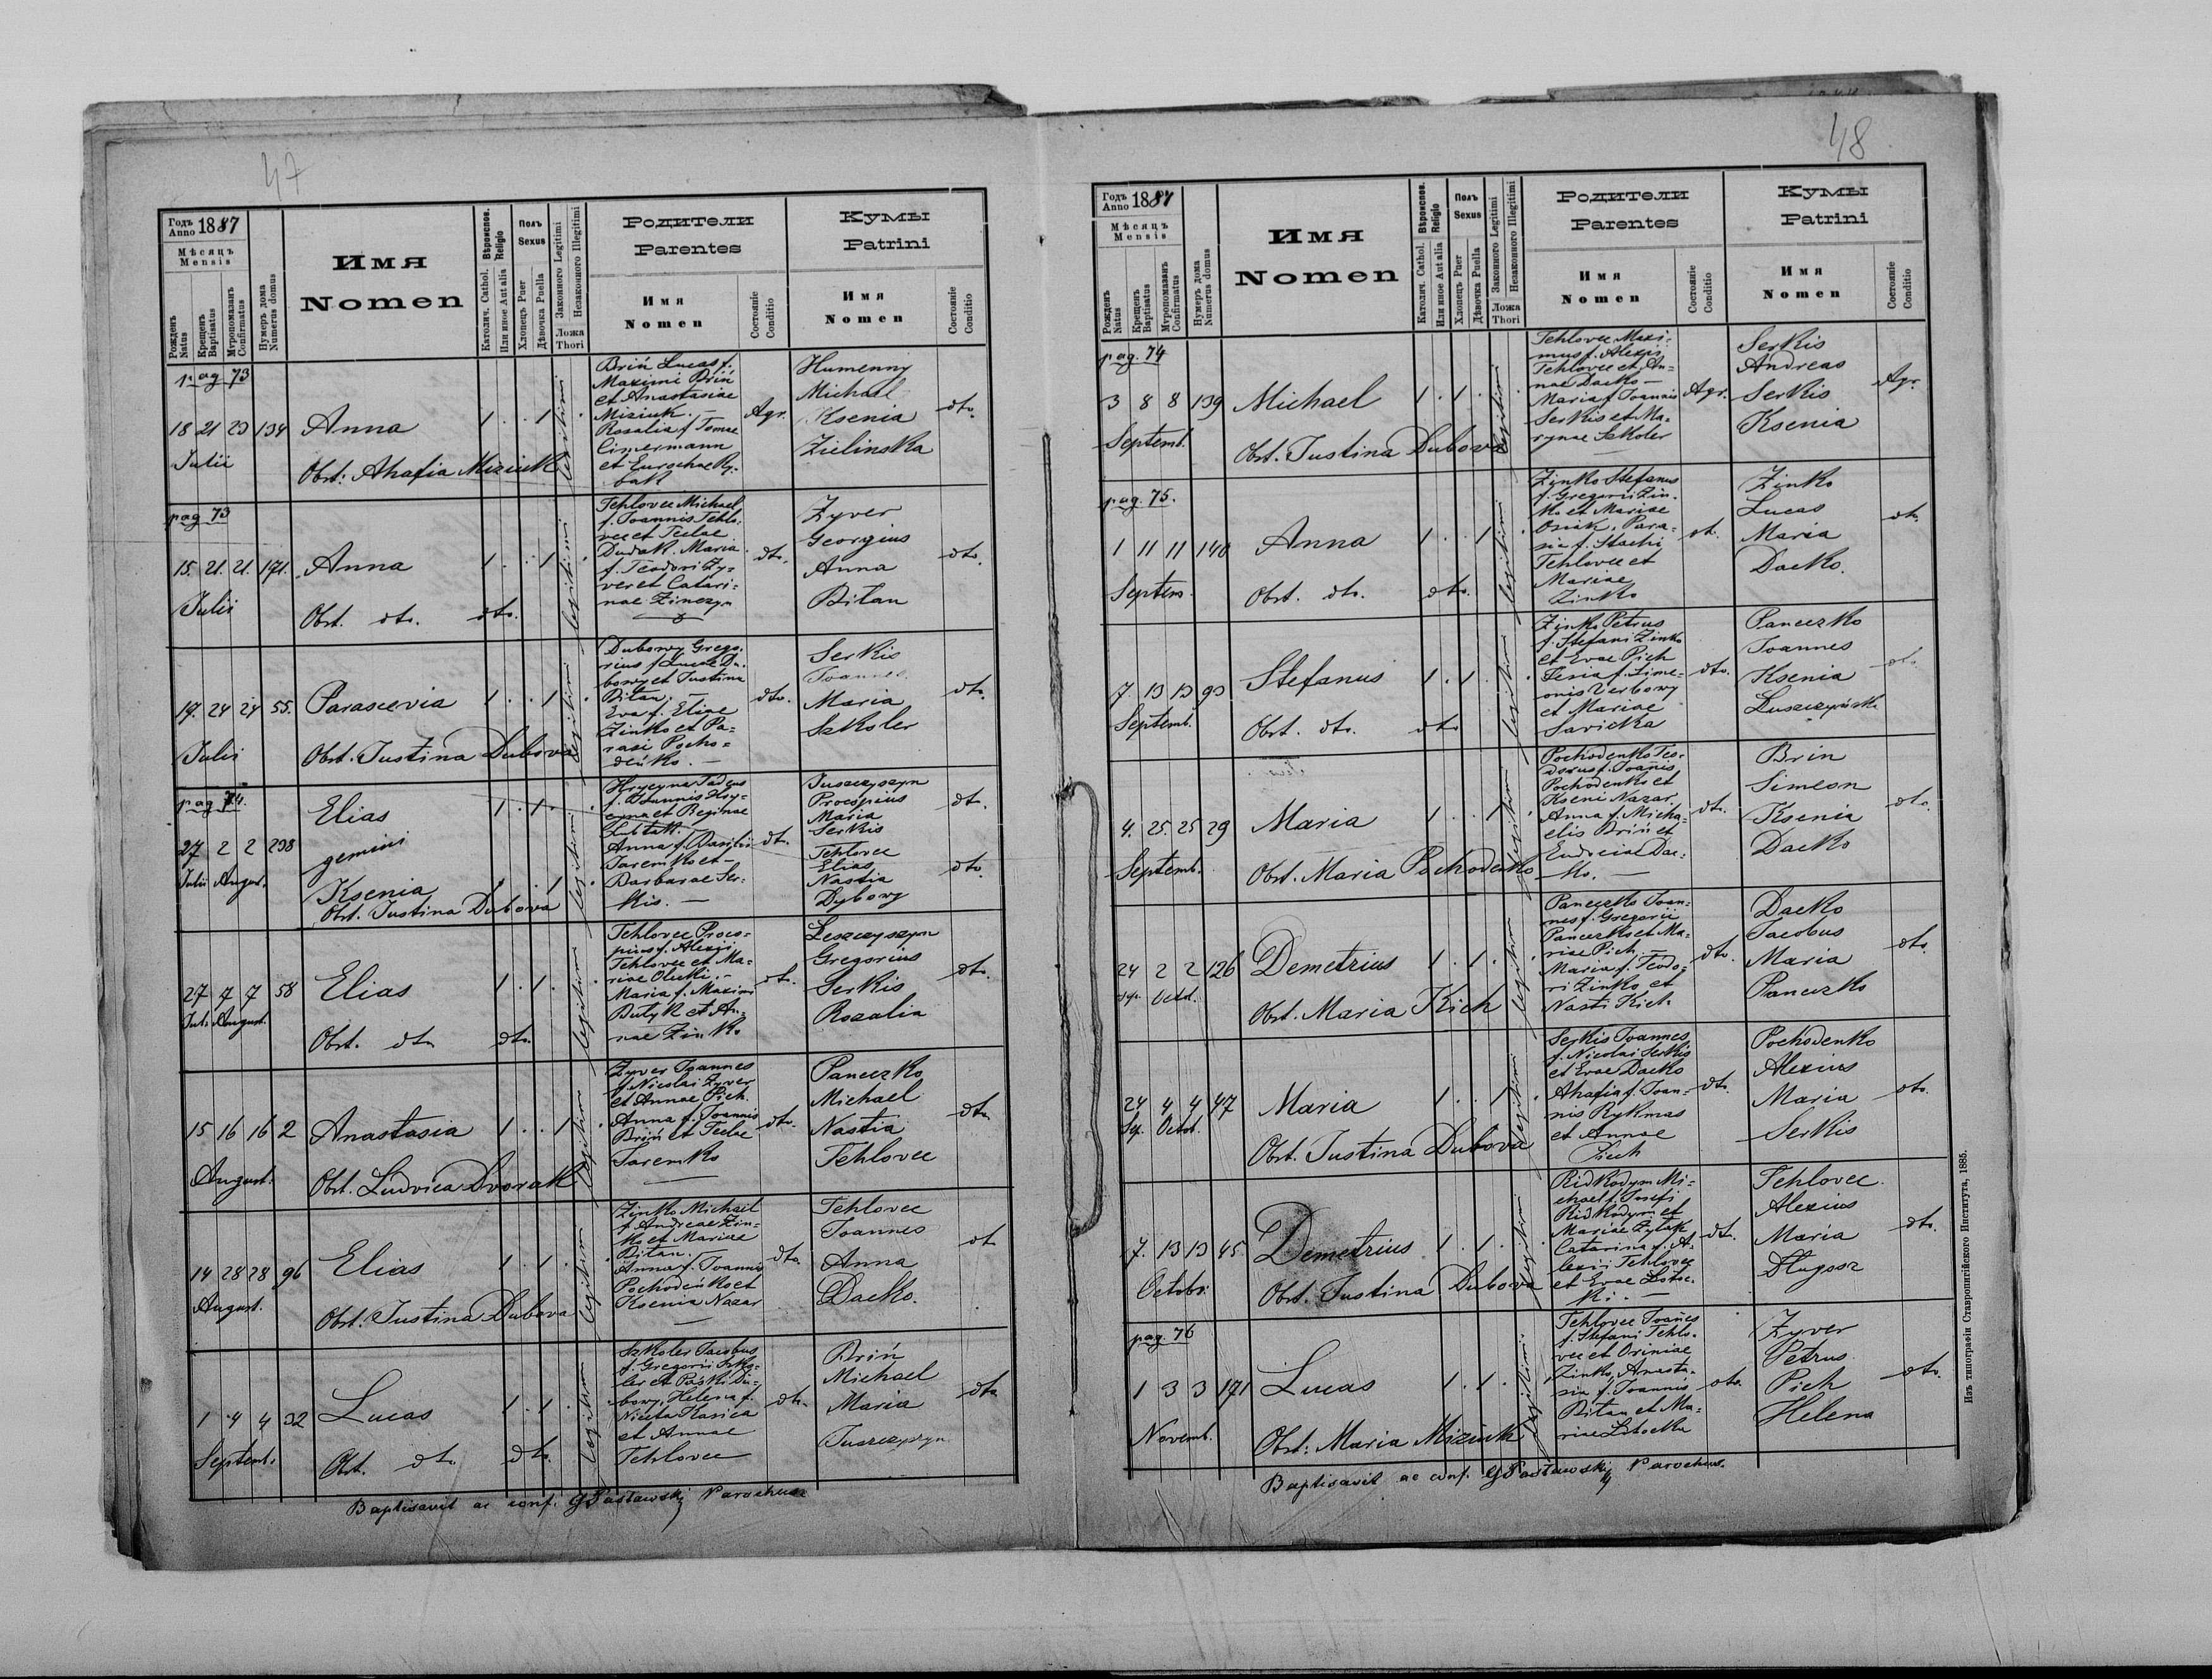 47
Годъ
Anno 1887
Мѣсяцъ
Mensis
Рожденъ
Natus
Крещенъ
Baptisatus
Мѵропомазанъ
Confirmatus
Нумеръ дома
Numerus domus
Имя
Nomen
Вѣроисповѣд.
Religio
Католич. Cathol.
Или иное Aut alia
Полъ
Sexus
Хлопецъ Puer
Дѣвочка Puella
Законного Legitimi
Незаконного Illegitimi
Ложа
Thori
Родители
Parentes
Имя
Nomen
Состоянiе
Conditio
Кумы
Patrini
Имя
Nomen
Состоянiе
Conditio
pag 73
18 21 23 134
Julii
Anna
1 . . 1 .
Obst: Ahafia Miziuk
legitimi
Briń Lucas f.
Maximi Briń
et Anastasiae
Miziuk. —
Rosalia f. Tomae
Cimermann
et Eurochae Ry-
bak
Agr.
Humenny
Michael
Ksenia
Zielinska
dto.
pag 73
15. 21. 21. 171.
Julii
Anna
1 . . 1 .
Obst. dto. dto.
legitimi
Tehlovec Michael
f. Joannis Tehlo-
vec et Teclae
Dudak. Maria
f. Teodori Zy-
ver et Catari-
nae Zinczyn
dto.
Zyver
Georgius
Anna
Bitan
dto.
19. 24 24 55.
Julii
Parascevia
1 . . 1 .
Obst. Justina Dubova
legitimi
Dubowy Grego-
rius f. Lucae Du-
bowy et Justina
Bitan. —
Eva f. Eliae
Zinko et Pa-
rasi Pocho-
deńko. —
dto.
Serkis
Joannes
Maria
Szkoler
dto.
pag 74.
27 2 2 238
Julii August.
Elias
1 . 1 .
gemini
Ksenia
1 . . 1 .
Obst. Justina Dubova
legitimi
Hrycyna Tadeus
f. Joannis Hry-
cyna et Reginae
Anna f. Basilii
Jaremko et
Barbarae Ser-
kis. —
dto.
Juszczyszyn
Procopius
Maria
Serkis
dto.
Tehlovec
Elias
Nastia
Dybowy
dto.
27 7 7 58
Juli August.
Elias
1 . 1 .
Obst. dto. dto.
legitimi
Tehlovec Proco-
pius f. Alexii
Tehlovec et Ma-
riae Olucki. —
Maria f. Maximi
Butyk et An-
nae Zinko
dto.
Leszczyszyn
Gregorius
Serkis
Rozalia
dto.
15 16 16 2
August.
Anastasia
1 . . 1 .
Obst. Ludvica Dvorak
legitimi
Zyver Joannes
f. Nicolai Zyver
et Annae Pich.
Anna f. Joannis
Briń et Teclae
Jaremko
dto.
Paneczko
Michael
Nastia
Tehlovec
dto.
14 28 28 96
August.
Elias
1 . 1 .
Obst. Justina Dubova
legitimi
Zinko Michael
f. Andreae Zin-
ko et Mariae
Bitan.
Anna f. Joannis
Pochodeńko et
Ksenia Nazar
dto.
Tehlovec
Joannes
Anna
Dacko.
dt.
1 4 4 32
Septemb.
Lucas
1 . 1 .
Obst. dto. dto.
legitimi
Szkoler Jacobus
f. Gregorii Szko-
ler et Paski Du-
bowy, Helena f.
Nicetae Kasica
et Annae
Tehlovec
dto.
Briń
Michael
Maria
Juszczyszyn
dto.
Baptisavit ac conf. GPasławskij Parochus
48
Годъ
Anno 1887
Мѣсяцъ
Mensis
Рожденъ
Natus
Крещенъ
Baptisatus
Мѵропомазанъ
Confirmatus
Нумеръ дома
Numerus domus
Имя
Nomen
Вѣроисповѣд.
Religio
Католич. Cathol.
Или иное Aut alia
Полъ
Sexus
Хлопецъ Puer
Дѣвочка Puella
Законного Legitimi
Незаконного Illegitimi
Ложа
Thori
Родители
Parentes
Имя
Nomen
Состоянiе
Conditio
Кумы
Patrini
Имя
Nomen
Состоянiе
Conditio
pag. 74
3 8 8 139
Septemb.
Michael
1 . 1 .
Obst. Justina Dubova
legitimi
Tehlovec Maxi-
mus f. Alexii
Tehlovec et An-
nae Dacko —
Maria f. Joannis
Serkis et Ma-
rynae Szkoler
Agr.
Serkis
Andreas
Serkis
Ksenia
Agr.
pag. 75.
1 11 11 140
Septem.
Anna
1 . . 1 .
Obst. dto. dto.
legitimi
Zinko Stefanus
f. Gregorii Zin-
ko et Mariae
Osiak. Para-
sia f. Stachi
Tehlovec et
Mariae
Zinko
dt.
Zinko
Lucas
Maria
Dacko.
dto
7 13 13 93
Septemb.
Stefanus
1 . 1 .
Obst. dto. dto
legitimi
Zinko Petrus
f. Stefani Zinko
et Evae Pich
Fesia f. Sime-
onis Verbowy
et Mariae
Savicka
dto.
Paneczko
Joannes
Ksenia
Luszczyńska
dto.
4. 25. 25 29
Septemb.
Maria
1 . . 1 .
Obst. Maria Pochodeńko
legitimi
Pochodenko Teo-
dorus f. Joannis
Pochodenko et
Kseni Nazar.
Anna f. Micha-
elis Briń et
Eudociae Dac-
ko. —
dto.
Brin
Simeon
Ksenia
Dacko
dto.
24 2 2 126
Sep. Octob.
Demetrius
1 . 1 .
Obst. Maria Kich
legitimi
Paneczko Joan-
nes f. Gregorii
Paneczko et Ma-
riae Pich —
Maria f. Teodo-
ri Zinko et
Nasti Kich
dto.
Dacko
Jacobus
Maria
Paneczko
dto.
24 4 4 47
Sep. Octob.
Maria
1 . . 1 .
Obst. Justina Dubova
legitimi
Serkis Joannes
f. Nicolai Serkis
et Evae Dacko
Ahafia f. Joan-
nis Rykmas
et Annae
Pich
dto.
Pochodenko
Alexius
Maria
Serkis
dto.
7. 13 13 45
Octobr.
Demetrius
1 . 1 .
Obst. Justina Dubova
legitimi
Ridkodym Mi-
chael f. Josefi
Ridkodym et
Mariae Zytak
Catarina f. A-
lexii Tehlovec
et Evae Lstoc-
ki. —
dt.
Tehlovec
Alexius
Maria
Długosz
dto.
pag. 76
1 3 3 171
Novemb.
Lucas
1 . 1 .
Obst: Maria Miziuk
legitimi
Tehlovec Joannes
f. Stefani Tehlo-
vec et Oriniae
Zinko, Anasta-
sia f. Joannis
Bitan et Ma-
riae Lstocka
dto.
Zyver
Petrus
Pich
Helena
dto.
Baptisavit ac conf. GPasławskij Parochus.
Изъ типографiи Ставропигiйского Института, 1885.